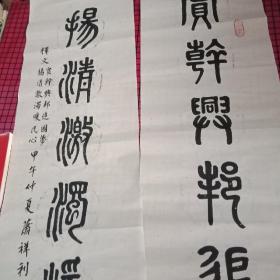 實幹興邦追
揚清激濁暖
釋文 實幹興邦追國夢
揚清激濁暖民心 甲午仲夏蕭祥利